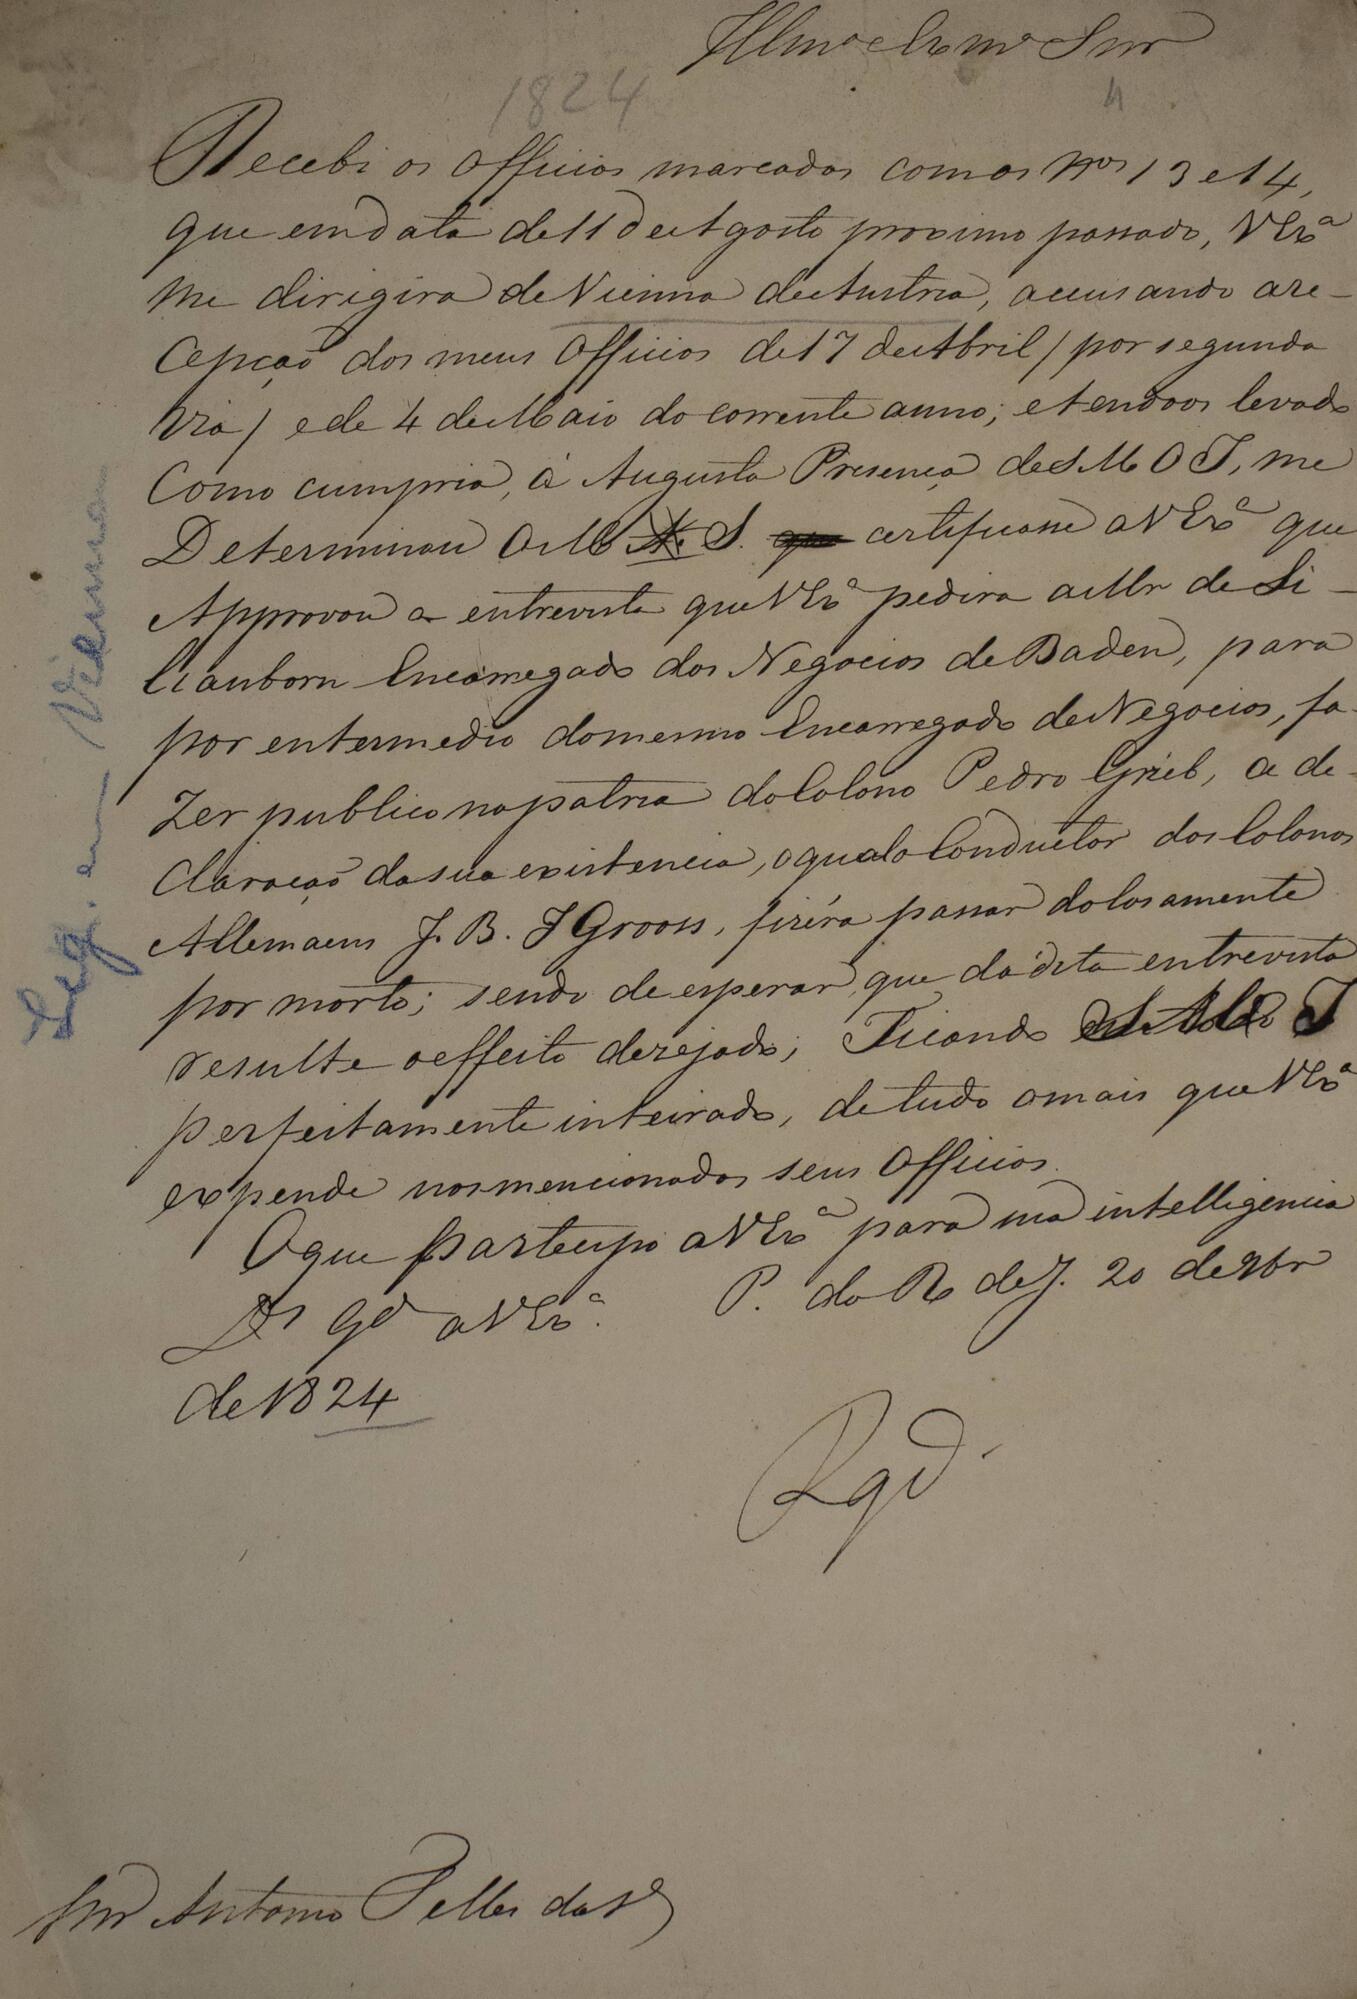 Illmo e Exmo Snr
1824
4
Recebi os Officios marcados com os Nos 13 e 14,
que em data de 11 de Agosto proximo passado, V Exa
me dirigira de Vienna de Austria, accusando a re-
cepção dos meus Officios de 17 de Abril / por segunda
via / e de 4 de Maio do corrente anno; e tendo os levado
como cumpria, á Augusta Presença de S M O I, me
Determinou O M S. certificasse a V Exa que
Approvou a entrevista que V Exa pedira a Mr de Li-
lianborn Encarregado dos Negocios de Baden, para
por entermedio do mesmo Encarregado de Negocios, fa-
zer publico na patria do Colono Pedro Grieb, a de-
claração da sua existencia, o qual o Conductor dos Colonos
Allemaens J. B. I Grooss, fizéra passar dolosamente
por morto; sendo de esperar, que da dita entrevista
resulte o effeito dezejado; Ficando I
perfeitamente inteirado, de tudo o mais que V Exa
expende nos mencionados seus Officios.
O que participo a V Exa para sua intelligencia
Ds gde a V Exa. P. do R de J. 20 de 9br
de 1824
Snr Antonio Telles da Sa
Leg. em Vienna